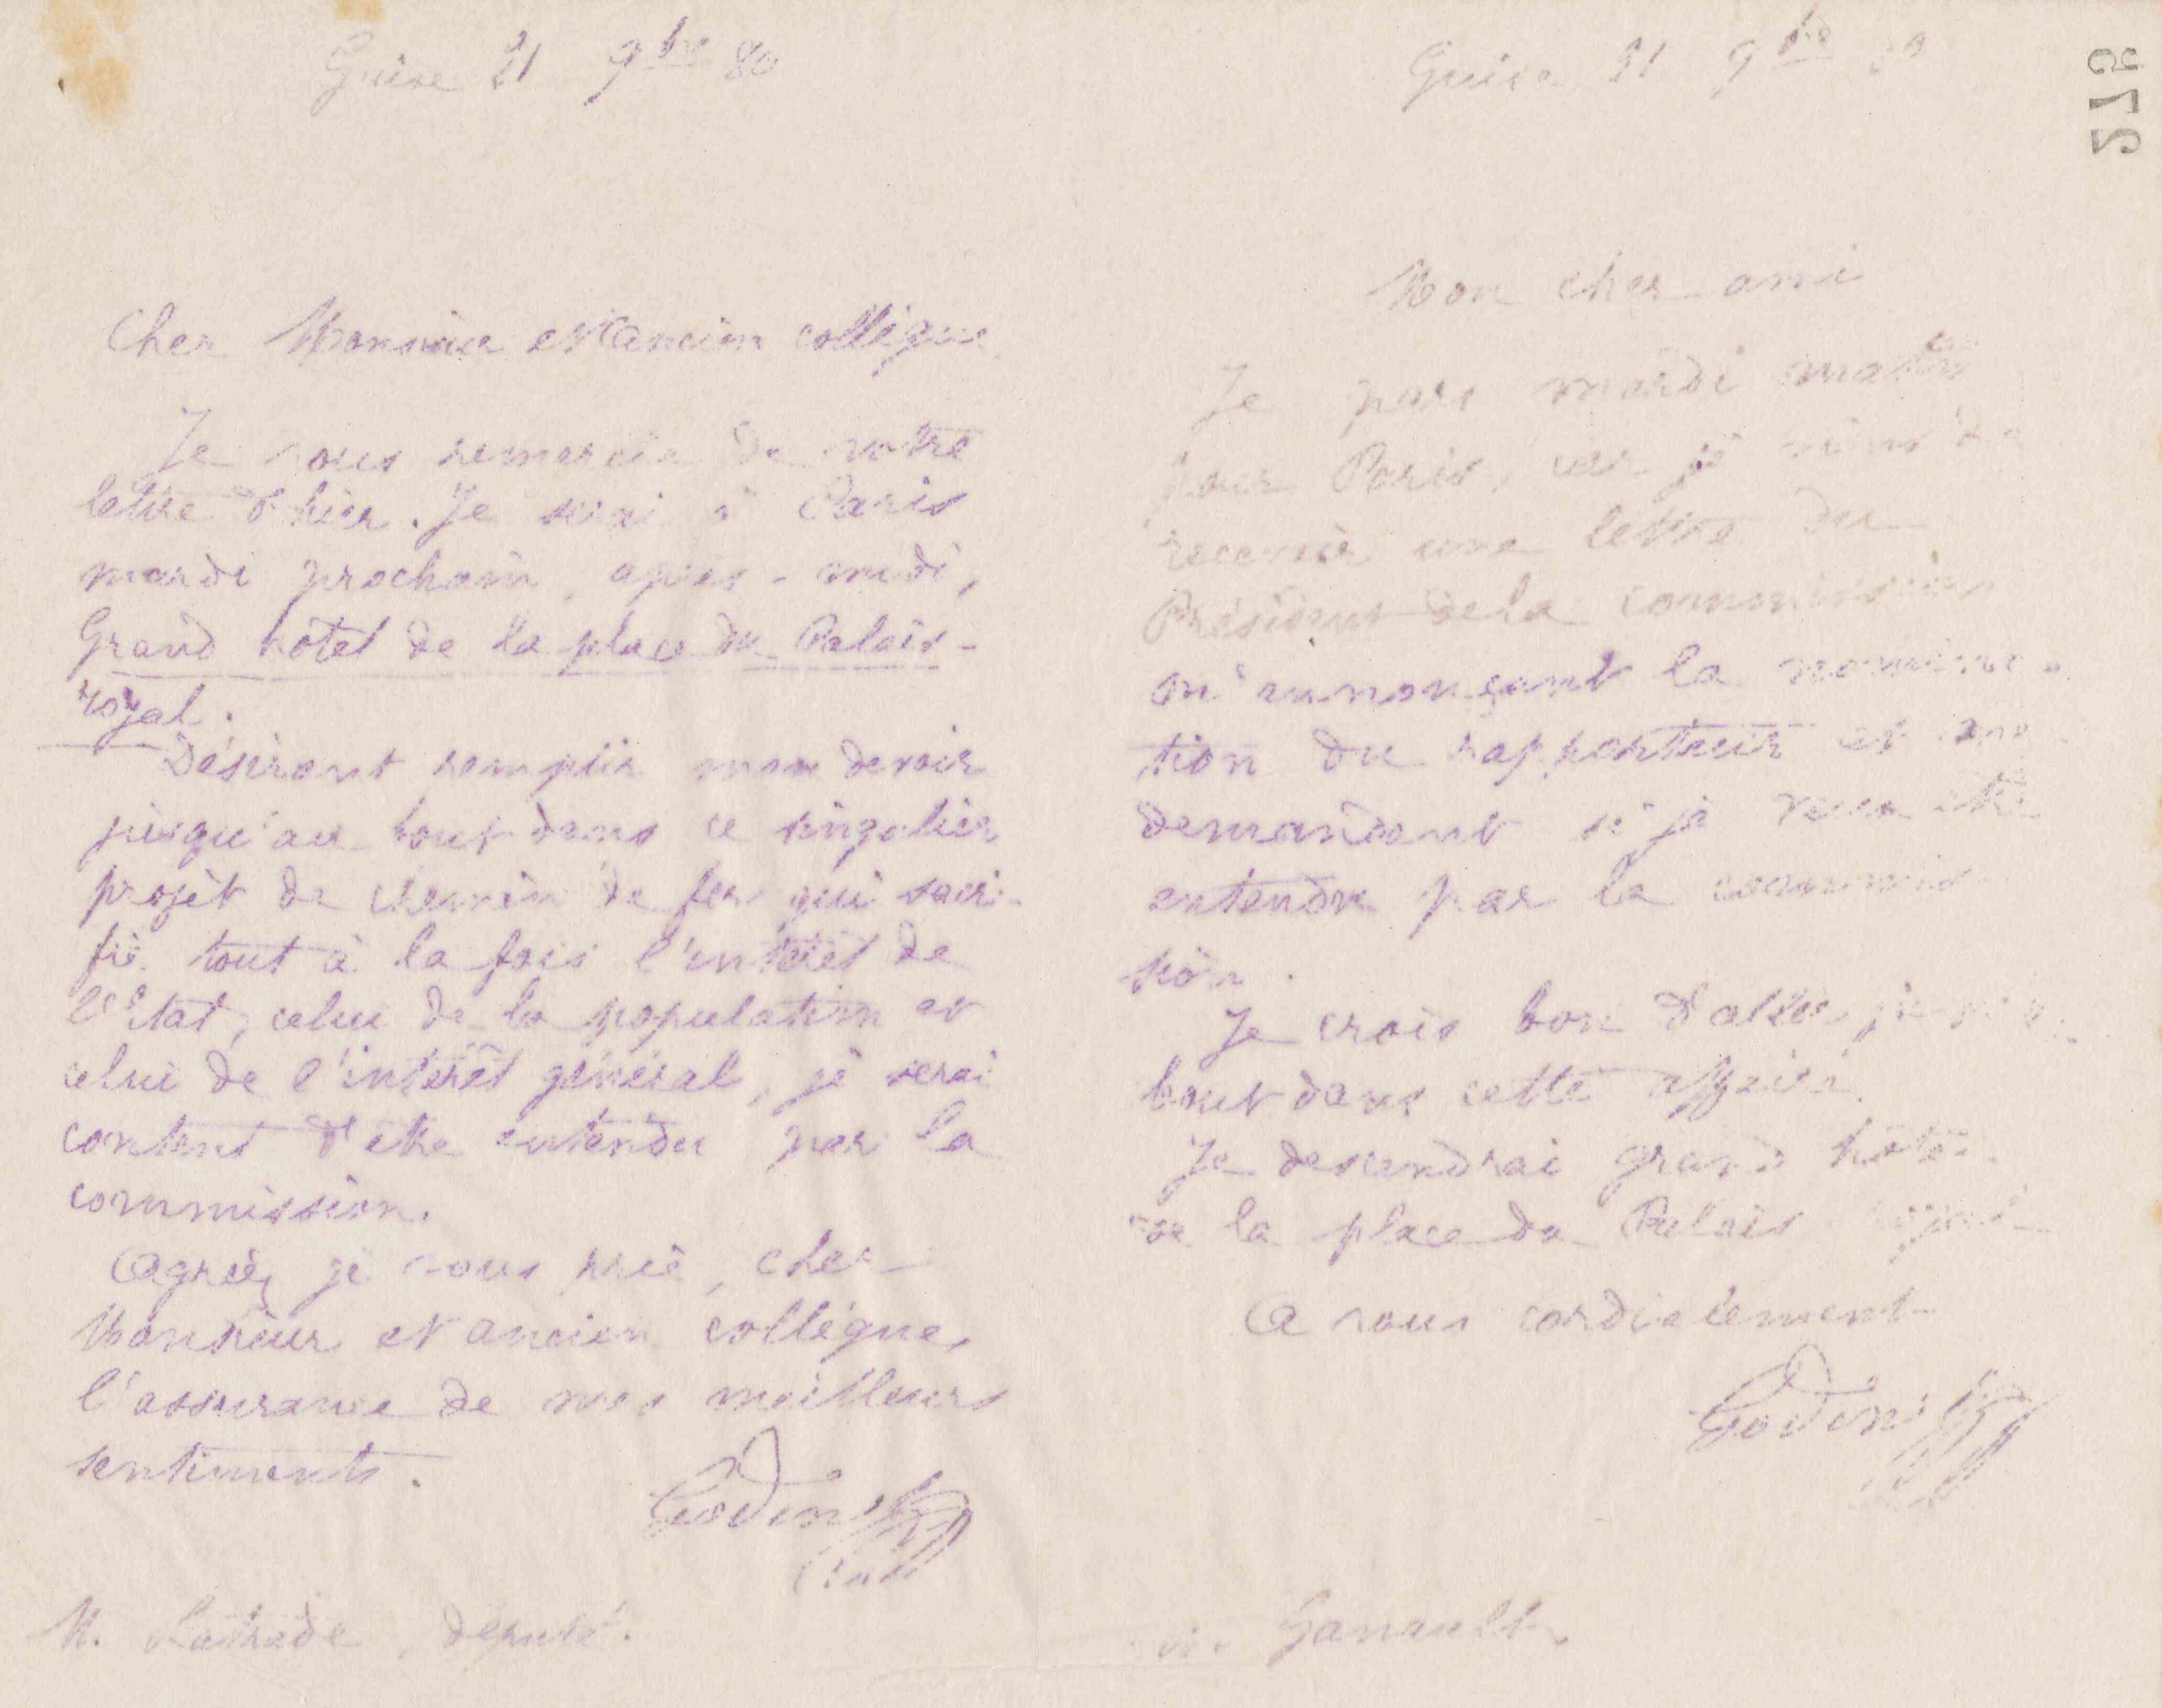 Guise 21 9bre 80
Cher Monsieur et ancien collègue
Je vous remercie de votre
lettre d'hier. Je serai à Paris
mardi prochain, après-midi,
Grand hôtel de la place du Palais-
royal.
Désirant remplir mon devoir
jusqu'au bout dans ce singulier
projet de chemin de fer qui sacri-
fie tout à la fois l'intérêt de
l'Etat, celui de la population et
celui de l'intérêt général, je serai
content d'être entendu par la
commission.
Agréez je vous prie, cher
Monsieur et ancien collègue,
l'assurance de mes meilleurs
sentiments.
Godin
M. Latrade, député.
275
Guise 21 9bre 80
Mon cher ami
Je pars mardi matin
pour Paris, car je viens de
recevoir une lettre du
Président de la commission
m'annonçant la nomina-
tion du rapporteur et me
demandant si je veux être
entendu par la commis-
sion.
Je crois bon d'aller
bout dans cette affaire.
Je descendrai grand hôtel
de la place du Palais royal
A vous cordialement
Godin
M. Ganault